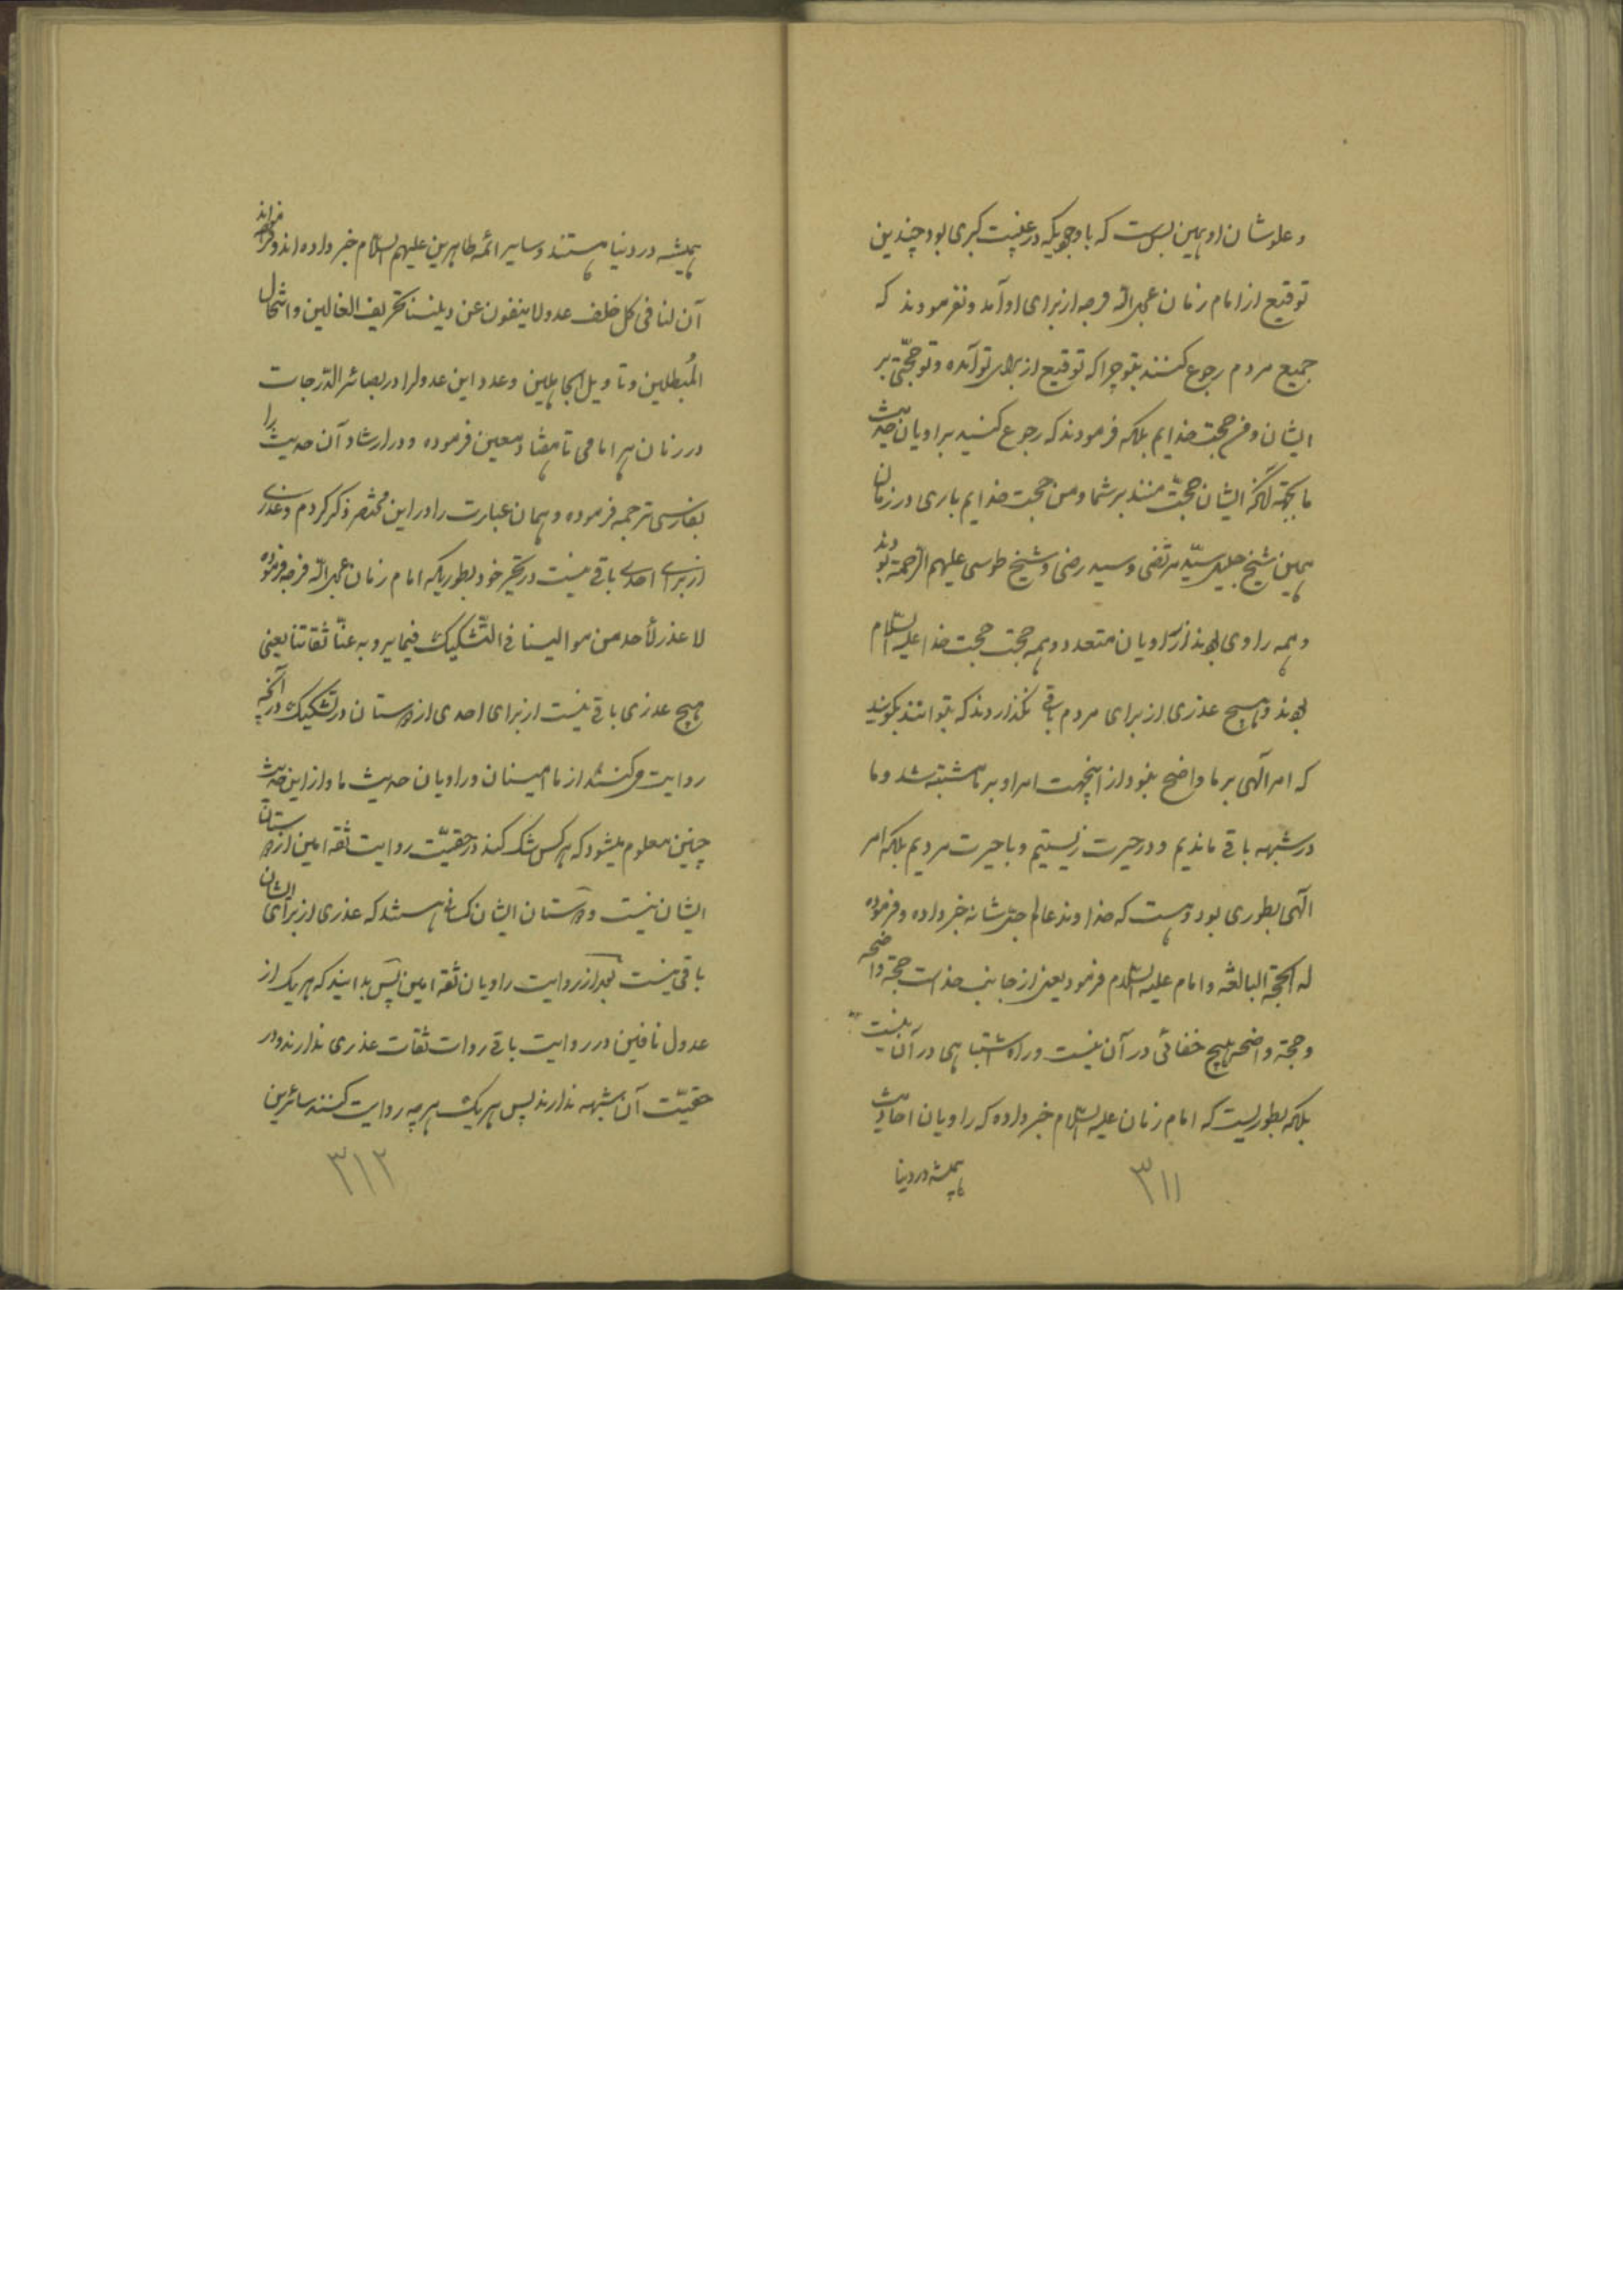 و علوشان او همین بس است که با وجودیکه در غیبت کبری بود چندین
توقیع از امام زمان عجل الله فرجه از برای او آمد و نفرمودند که
جمیع مردم رجوع کنند بتو چرا که توقیع از برای تو آمده و تو حجتی بر
ایشان و من حجت خدایم بلکه فرمودند که رجوع کنید براویان حدیث
ما بجهة آنکه ایشان حجت منند بر شما و من حجت خدایم باری در زمان
همین شیخ جلیل سیّد مرتضی و سید رضی و شیخ طوسی علیهم الرحمة بودند
و همه راوی بودند از راویان متعدد و همه حجت حجت خدا علیه السلام
بودند و هیچ عذری از برای مردم باقی نگذاردند که بتوانند بگویند
که امر آلهی بر ما واضح نبود از اینجهت امر او بر ما مشتبه شد و ما
در شبهه باقی ماندیم و در حیرت زیستیم و با حیرت مردیم بلکه امر
آلهی بطوری بود و هست که خداوند عالم جلّ شانه خبر داده و فرموده
له الحجة البالغه و امام علیه السّلام فرمود یعنی از جانب خداست حجة واضحه
و حجة واضحه هیچ خفائی در آن نیست و راه اشتباهی در آن نیست
بلکه بطوریست که امام زمان علیه السّلام خبر داده که راویان احادیث
همیشه در دنیا
۳۱۱
همیشه در دنیا هستند و سایر ائمه طاهرین علیهم السّلام خبر داده‌اند و فرموده‌اند
آن لنا فی کل خلف عدولا ینفون عن دیننا تحریف الغالین و انتحال
المُبطلین و تاویل الجاهلین و عدد این عدول را در بصائر الدّرجات
در زمان هر امامی تا هفتاد معین فرموده و در ارشاد آن حدیث را
بفارسی ترجمه فرموده و همان عبارت را در این مختصر ذکر کردم و عذری
از برای احدی باقی نیست در تحیر خود بطوریکه امام زمان عجل الله فرجه فرموده
لا عذر لأحد من موالینا فی التّشکیک فیما یرویه عنّا ثقاتنا یعنی
هیچ عذری باقی نیست از برای احدی از دوستان در تشکیک در آنچه
روایت میکنند از ما امینان و راویان حدیث ما و از این حدیث
چنین معلوم میشود که هر کس شک کند در حقیّت روایت ثقه امین از دوستان
ایشان نیست و دوستان ایشان کسانی هستند که عذری از برای ایشان
باقی نیست بعد از روایت راویان ثقه امین پس بدانید که هر یک از
عدول نافین در روایت باقی روات ثقات عذری ندارند و در
حقیّت آن شبهه ندارند پس هر یک هر چه روایت کنند سائرین
۳۱۲